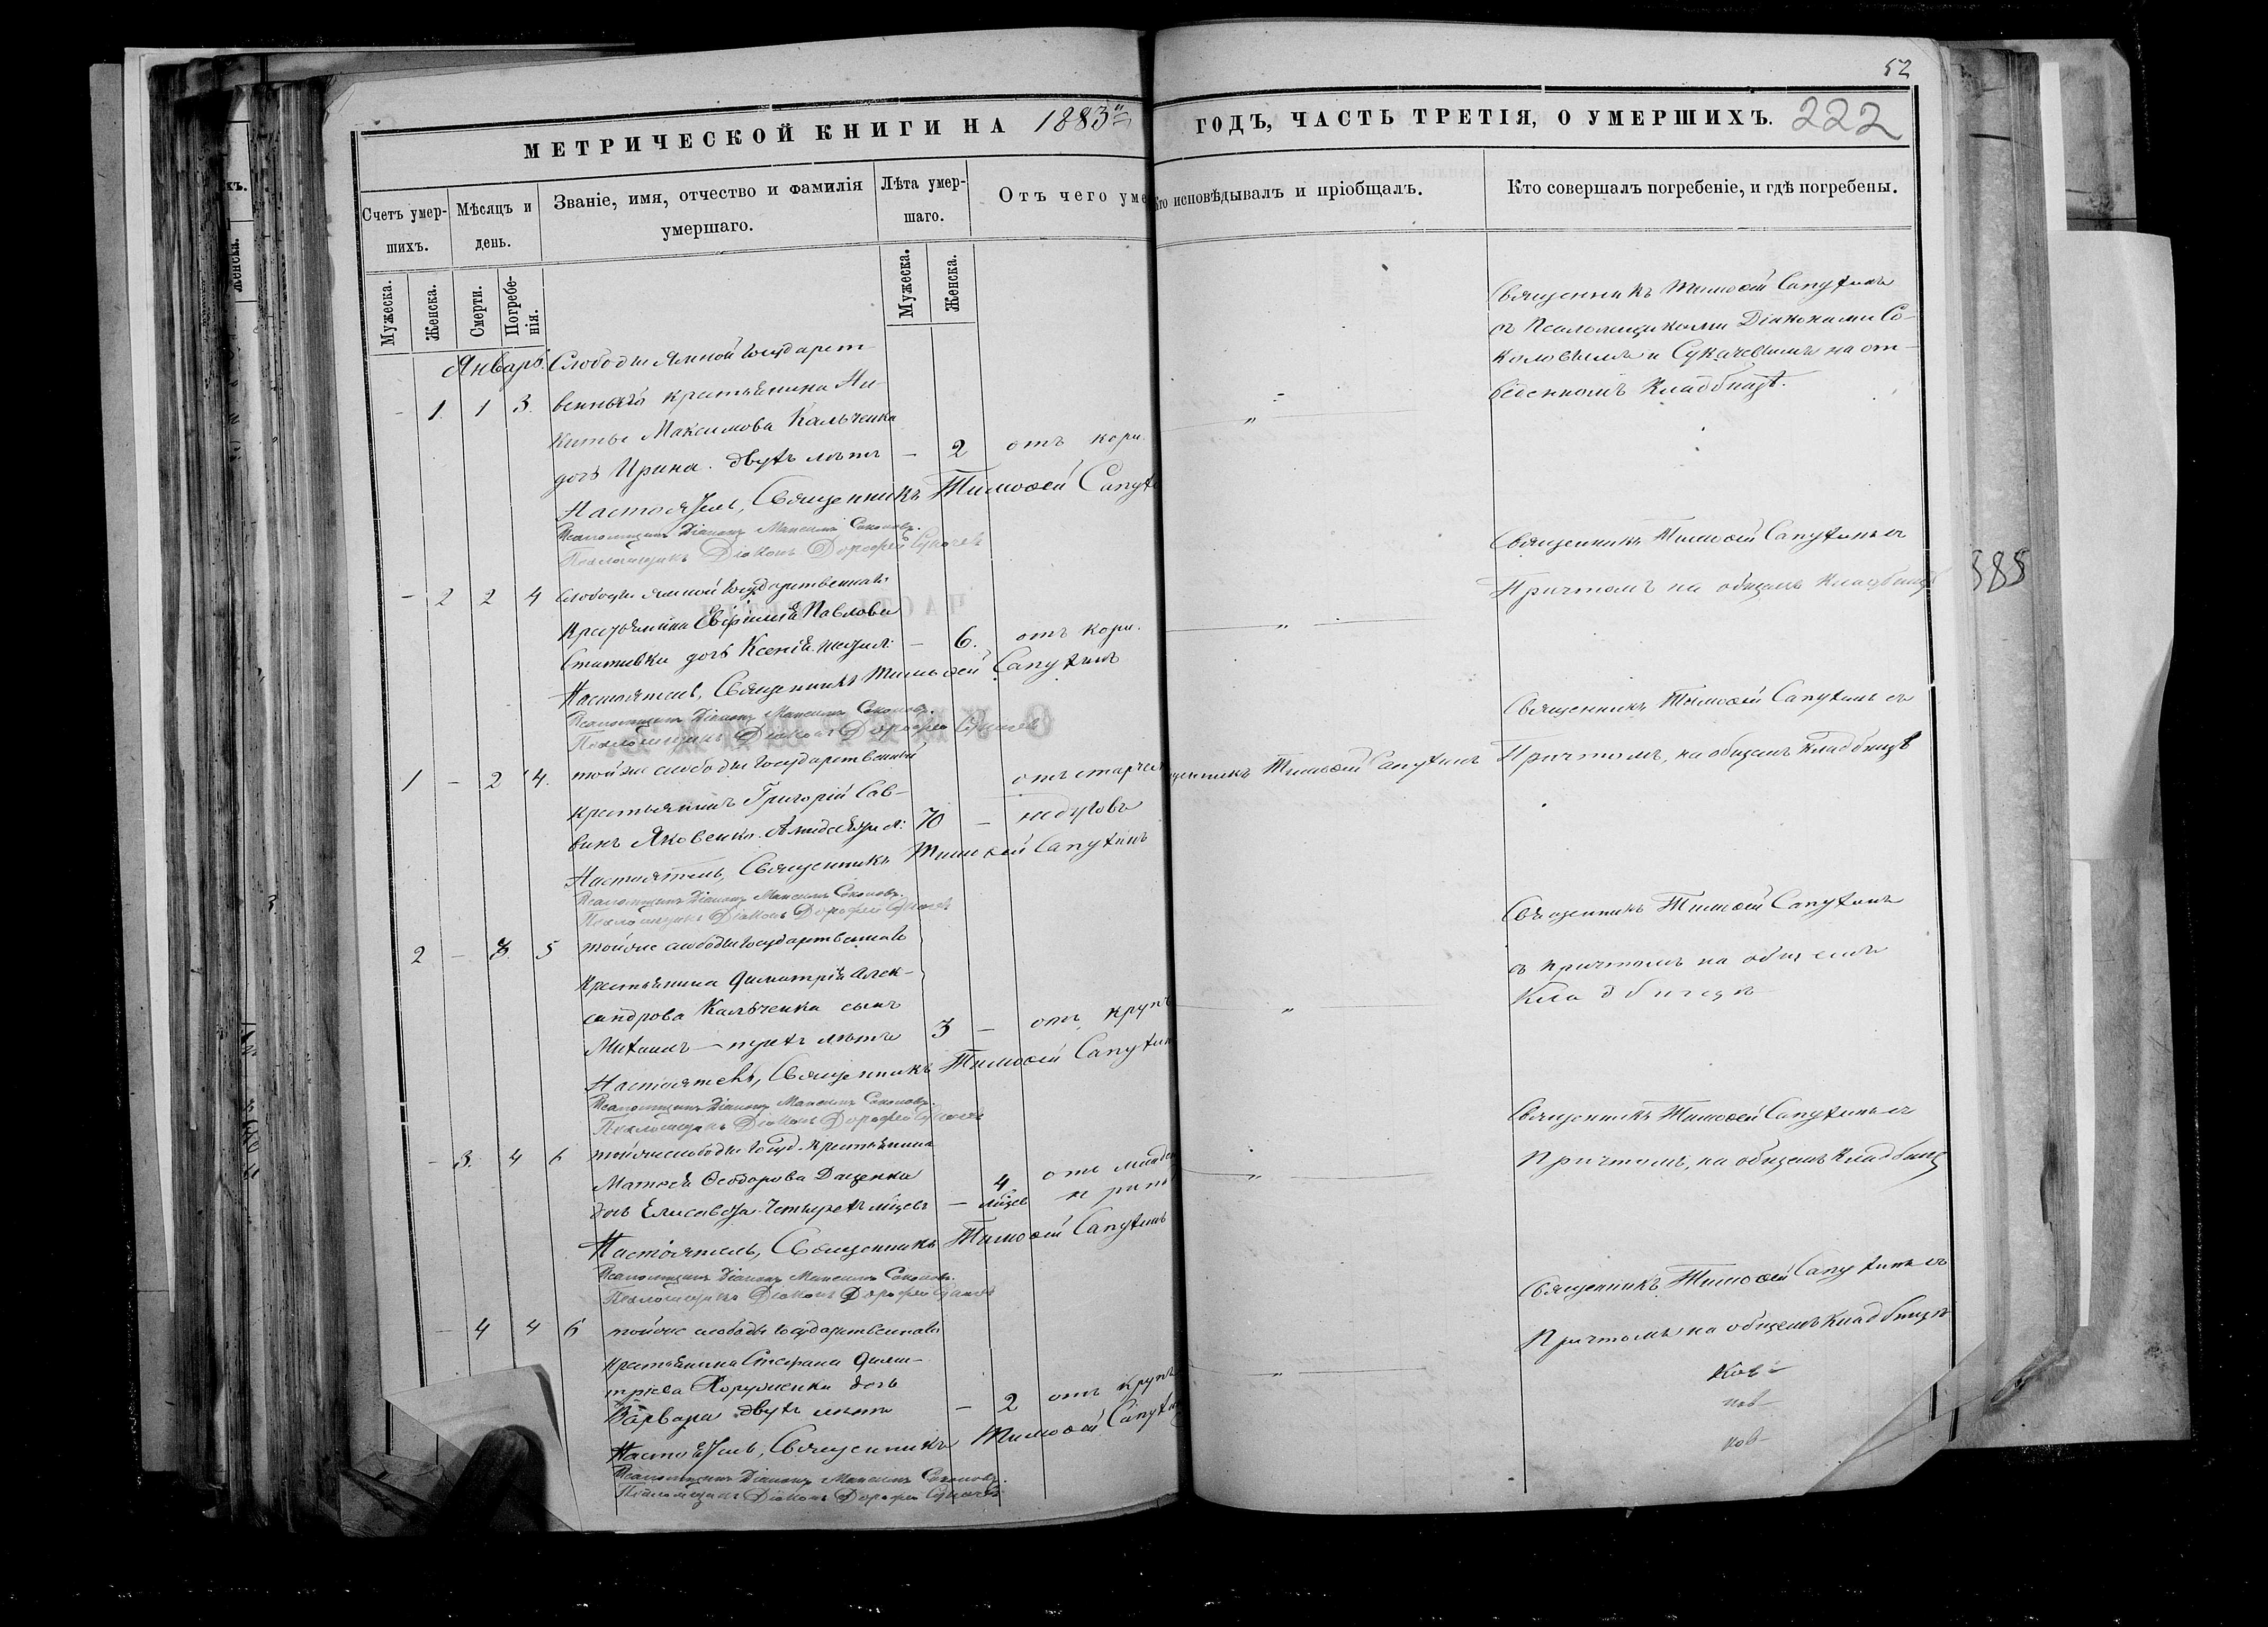 52
МЕТРИЧЕСКОЙ КНИГИ НА 1883й ГОДЪ, ЧАСТЬ ТРЕТІЯ, О УМЕРШИХЪ. 222
Счетъ умер-
шихъ.
Мѣсяцъ и
день.
Званіе, имя, отчество и фамилія
умершаго.
Лѣта умер-
шаго.
Отъ чего уме
Кто исповѣдывалъ и пріобщалъ.
Кто совершалъ погребеніе, и гдѣ погребены.
Мужеска.
Женска.
Смерти.
Погребе-
нія.
Мужеска.
Женска.
Январь. Слободы Ямной Государст-
- 1. 1 3. веннаго крестьянина Ни-
киты Максимова Кальченка
дочь Ирина. двухъ лѣтъ — 2 отъ кори. "
Священникъ Тимоѳей Сапухинъ
съ Псаломщиками Діаконами Со-
коловымъ и Сукачевымъ на от-
веденномъ кладбищѣ.
Настоятель, Священникъ Тимоѳей Сапухи
Псаломщикъ Діаконъ Максимъ Соколовъ.
Псаломщикъ Діаконъ Дорофей Сукачев
- 2 2 4 Слободы Ямной Государственнаго
Крестьянина Евфимія Павлова
дочь Ксенія — 6. отъ кори. "
Священникъ Тимоѳей Сапухинъ съ
Причтомъ на общемъ кладбищѣ
Настоятель, Священникъ Тимоѳей Сапухинъ
Псаломщикъ Діаконъ Максимъ Соколовъ.
Псаломщикъ Діаконъ Дорофей Сукачев
1 - 2 4. той же слободы Государственный
крестьянинъ Григорій Сав-
винъ Яковенко. 70 — отъ старчес
недуговъ
щенникъ Тимоѳей Сапухинъ
Священникъ Тимоѳей Сапухинъ съ
Причтомъ, на общемъ кладбищѣ
Настоятель, Священникъ Тимоѳей Сапухинъ
Псаломщикъ Діаконъ Максимъ Соколовъ.
Псаломщикъ Діаконъ Дорофей Сукачев
2 — 3. 5 той же слободы Государственнаго
Крестьянина Димитрія Алек-
сандрова Кальченка сынъ
Михаилъ — трехъ лѣтъ 3 — отъ крупъ "
Священникъ Тимоѳей Сапухинъ
съ причтомъ на общемъ
Кладбищѣ
Настоятель, Священникъ Тимоѳей Сапухин
Псаломщикъ Діаконъ Максимъ Соколовъ.
Псаломщикъ Діаконъ Дорофей Сукачев
- 3. 4 6 той же слободы Госуд. Крестьянина
Матѳея Ѳеодорова Даценка
дочь Елисавета. Четырехъ мѣсяц — 4 мѣсяц отъ младен "
Священникъ Тимоѳей Сапухинъ съ
Причтомъ, на общемъ кладбищѣ
Настоятель, Священникъ Тимоѳей Сапухинъ
Псаломщикъ Діаконъ Максимъ Соколовъ.
Псаломщикъ Діаконъ Дорофей Сукачев
- 4 4 6 той же слободы Государственнаго
Крестьянина Стефана Дими-
тріева дочь
Варвара двухъ лѣтъ — 2 отъ крупъ "
Священникъ Тимоѳей Сапухинъ съ
Причтомъ на общемъ кладбищѣ
Настоятель, Священникъ Тимоѳей Сапухин
Псаломщикъ Діаконъ Максимъ Соколовъ.
Псаломщикъ Діаконъ Дорофей Сукачев